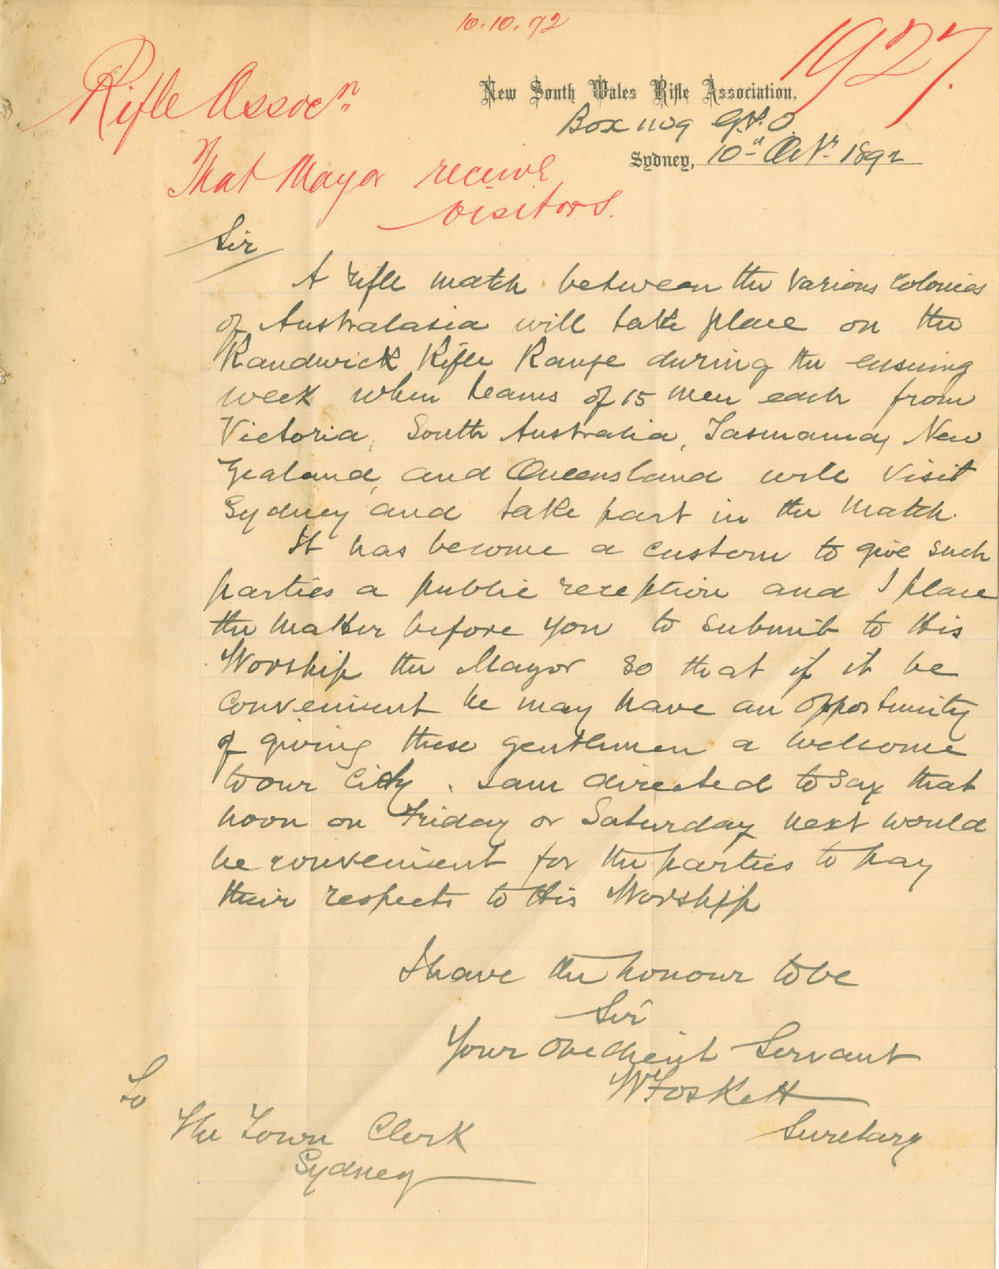 10.10.92
1927.
Rifle Assocn
That Mayor receive
visitors.
New South Wales Rifle Association,
Box 1109 G.P.O.
Sydney, 10th Octr 1892
Sir
A rifle match between the various colonies
of Australasia will take place on the
Randwick Rifle Range during the ensuing
week when teams of 15 men each from
Victoria, South Australia, Tasmania, New
Zealand, and Queensland will visit
Sydney and take part in the match.
It has become a custom to give such
parties a public reception and I place
the matter before you to submit to His
Worship the Mayor so that if it be
convenient he may have an opportunity
of giving these gentlemen a welcome
to our City. I am directed to say that
noon on Friday or Saturday next would
be convenient for the parties to pay
their respects to His Worship
I have the honour to be
Sir
Your obedient Servant
W Foskett
Secretary
To
The Town Clerk
Sydney